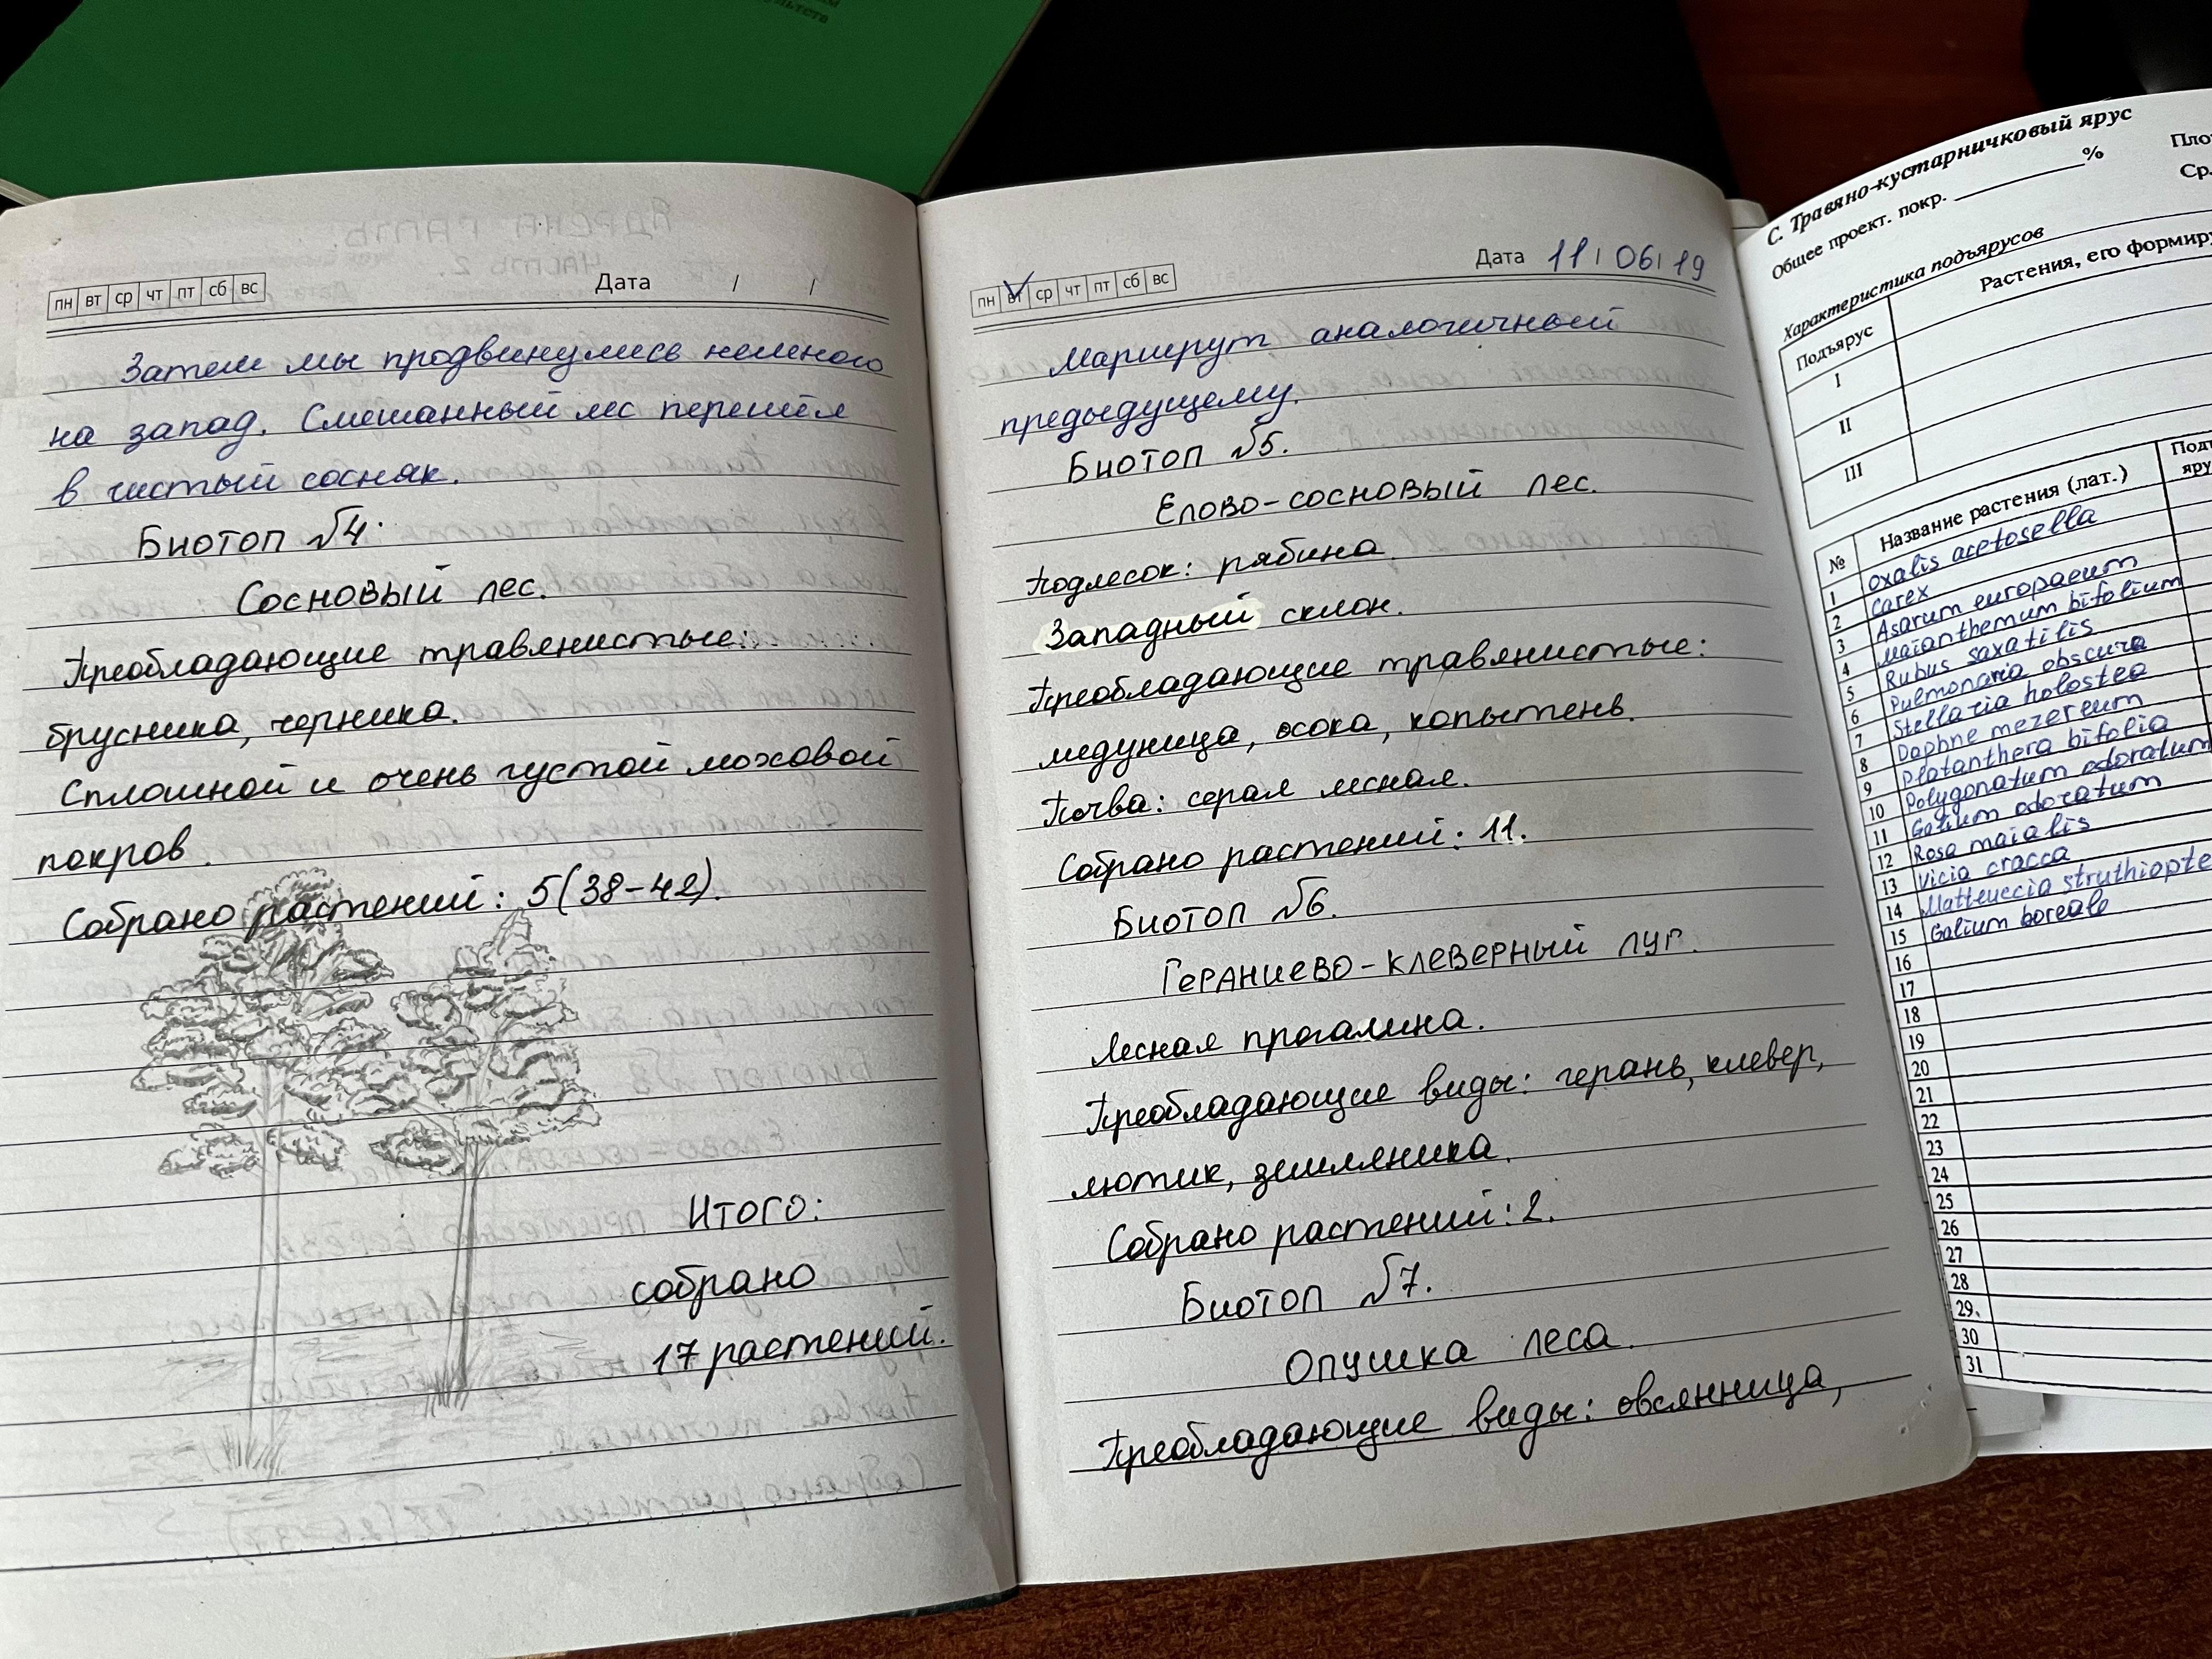 пн вт ср чт пт сб вс Дата / /
Затем мы продвинулись немного
на запад. Смешанный лес перешёл
в чистый сосняк.
Биотоп №4.
Сосновый лес.
Преобладающие травянистые:
брусника, черника.
Сплошной и очень густой моховой
покров.
Собрано растений: 5(38-42).
Итого:
собрано
17 растений.
пн вт ср чт пт сб вс Дата 11/06/19
Маршрут аналогичный
предыдущему.
Биотоп №5.
Елово-сосновый лес.
Подлесок: рябина.
Западный склон.
Преобладающие травянистые:
медуница, осока, копытень.
Почва: серая лесная.
Собрано растений: 11.
Биотоп №6.
Гераниево-клеверный луг.
Лесная прогалина.
Преобладающие виды: герань, клевер,
лютик, земляника.
Собрано растений: 2.
Биотоп №7.
Опушка леса.
Преобладающие виды: овсянница,
С. Травяно-кустарничковый ярус
Общее проект. покр. %
Ср.
Характеристика подъярусов
Подъярус Растения, его
I
II
III
№ Название растения (лат.)
1 Oxalis acetosella
2 Carex
3 Asarum europaeum
4 Maianthemum bifolium
5 Rubus saxatilis
6 Pulmonaria obscura
7 Stellaria holostea
8 Daphne mezereum
9 Platanthera bifolia
10 Polygonatum odoratum
11 Galium odoratum
12 Rosa maialis
13 Vicia cracca
14 Matteuccia
15 Galium boreale
16
17
18
19
20
21
22
23
24
25
26
27
28
29.
30
31